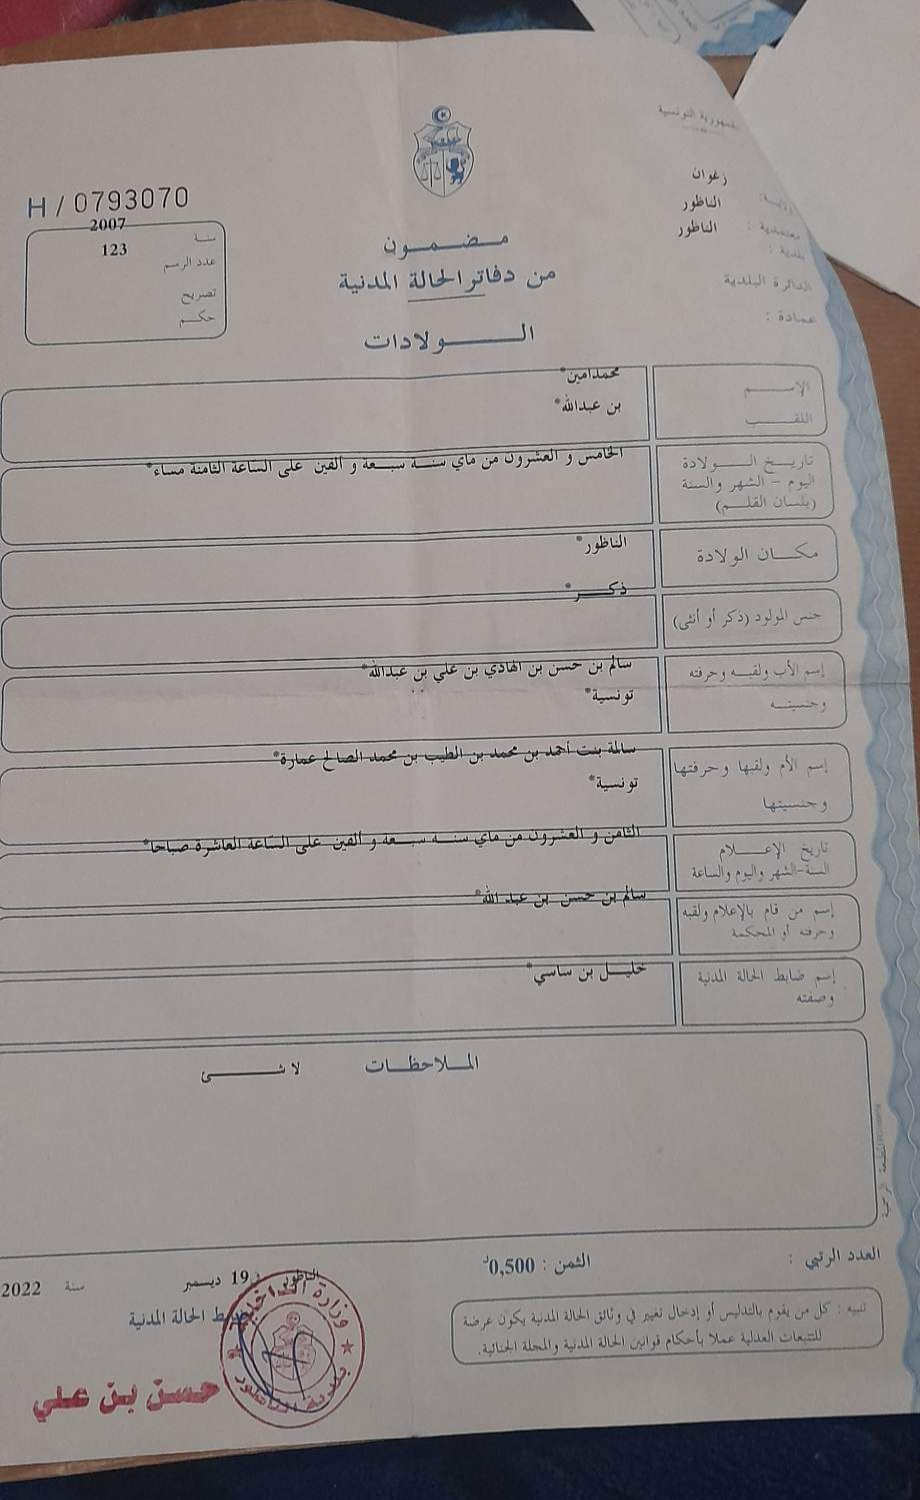 الجمهورية التونسية
ولاية : زغوان
معتمدية : الناظور
بلدية : الناظور
الدائرة البلدية
عمادة :
H / 0793070
سنة 2007
عدد الرسم 123
تصريح
حكم
مضمون
من دفاتر الحالة المدنية
الولادات
الإسم محمدامين*
اللقب بن عبدالله*
تاريخ الولادة
اليوم - الشهر والسنة
(بلسان القلم)
الخامس و العشرون من ماي سنة سبعة و ألفين على الساعة الثامنة مساء*
مكان الولادة الناظور*
جنس المولود (ذكر أو أنثى) ذكر*
إسم الأب ولقبه وحرفته سالم بن حسن بن الهادي بن علي بن عبدالله*
وجنسيته تونسية*
إسم الأم ولقبها وحرفتها سالمة بنت أحمد بن محمد بن الطيب بن محمد الصالح عمارة*
وجنسيتها تونسية*
تاريخ الإعلام
السنة-الشهر واليوم والساعة
الثامن و العشرون من ماي سنة سبعة و ألفين على الساعة العاشرة صباحا*
إسم من قام بالإعلام ولقبه
وحرفته أو المحكمة
سالم بن حسن بن عبد الله*
إسم ضابط الحالة المدنية
وصفته
خليل بن ساسي*
الملاحظات لا شئ
المطبعة الرسمية
العدد الرتبي :
الثمن : 0,500د
الناظور في 19 ديسمبر سنة 2022
ضابط الحالة المدنية
تنبيه : كل من يقوم بالتدليس أو إدخال تغيير في وثائق الحالة المدنية يكون عرضة
للتتبعات العدلية عملا بأحكام قوانين الحالة المدنية والمجلة الجنائية.
وزارة الداخلية
بلدية الناظور
حسن بن علي